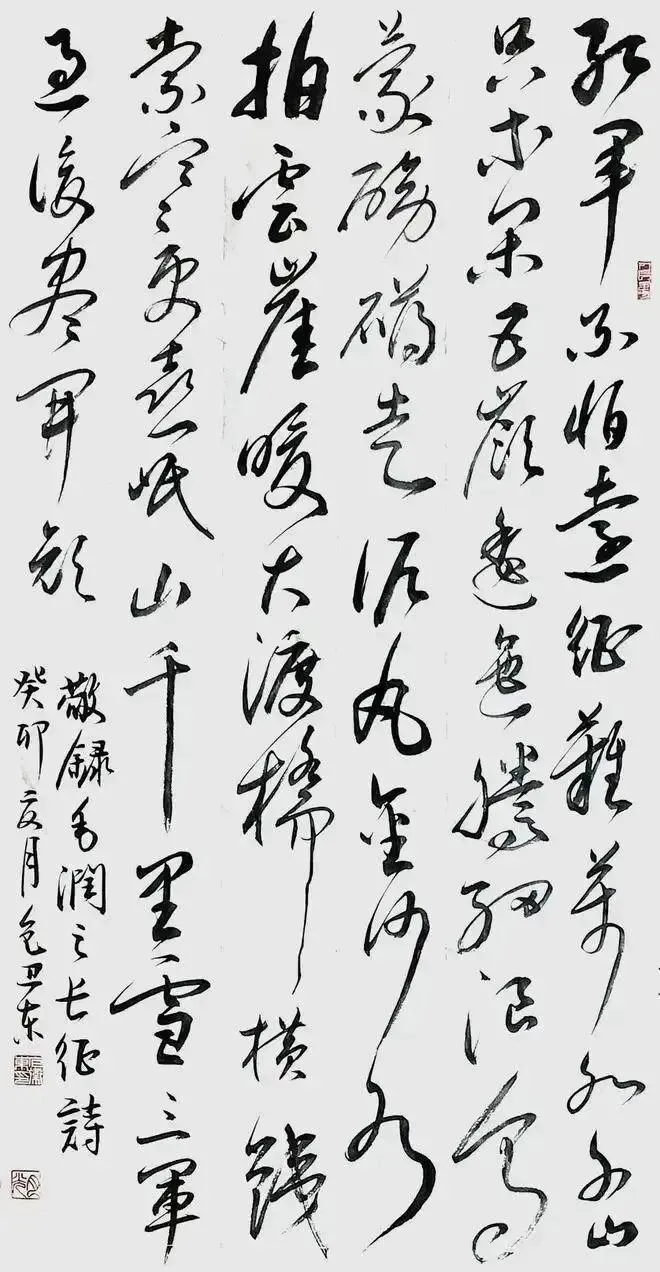 紅軍不怕遠征難萬水千山
只等閑五嶺逶迤騰細浪烏
蒙磅礴走泥丸金沙水
拍雲崖暖大渡橋橫鐵
索寒更喜岷山千里雪三軍
過後盡開顏
敬錄毛潤之長征詩
癸卯夏月包东